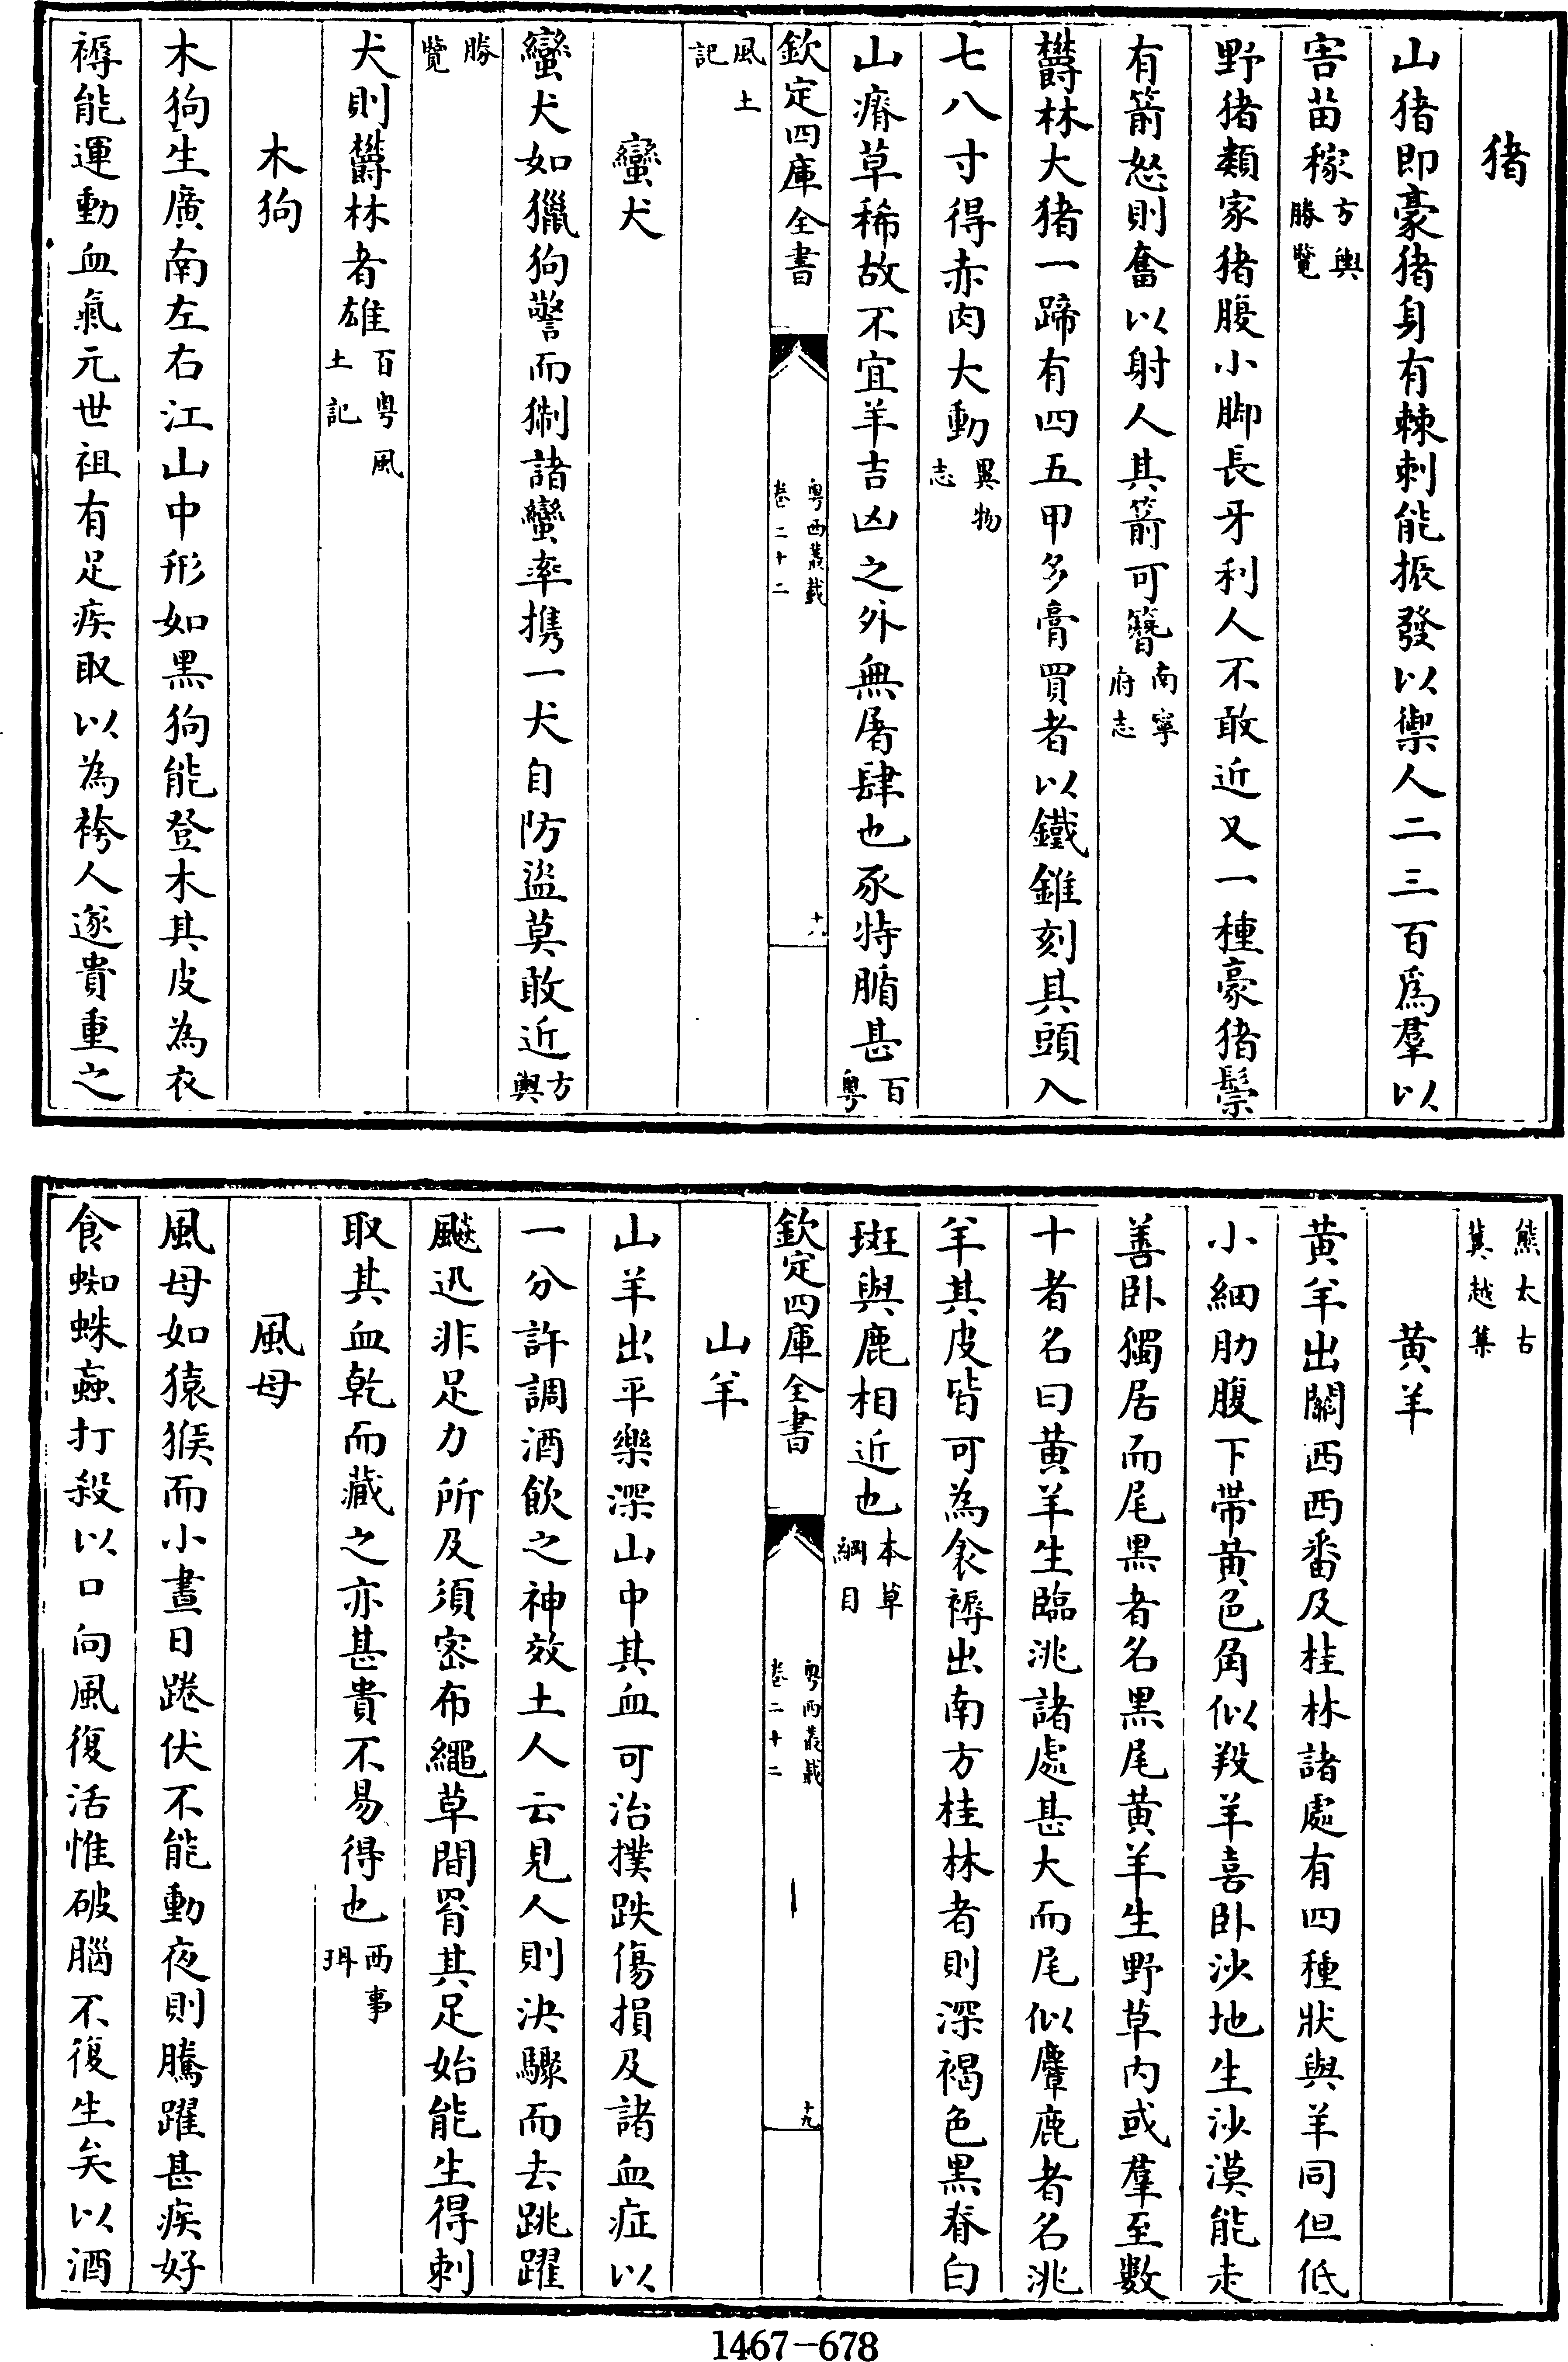 猪
山猪即豪猪身有棘刺能振發以禦人二三百爲羣以
害苗稼方輿勝覽
野猪類家猪腹小脚長牙利人不敢近又一種豪猪鬃
有箭怒則奮以射人其箭可簪南寧府志
欝林大猪一蹄有四五甲多膏買者以鐵錐刻其頭入
七八寸得赤肉大動異物志
山瘠草稀故不宜羊吉凶之外無屠肆也豕特腯甚百粤
欽定四庫全書
粤西叢載
卷二十二
十八
風土記
蠻犬
蠻犬如獵狗警而猘諸蠻率携一犬自防盜莫敢近方輿
勝覽
犬則欝林者雄百粤風土記
木狗
木狗生廣南左右江山中形如黑狗能登木其皮為衣
褥能運動血氣元世祖有足疾取以為袴人遂貴重之
熊太古冀越集
黄羊
黄羊出關西西番及桂林諸處有四種狀與羊同但低
小細肋腹下帶黄色角似羖羊喜卧沙地生沙漠能走
善卧獨居而尾黑者名黑尾黄羊生野草内或羣至數
十者名曰黄羊生臨洮諸處甚大而尾似麞鹿者名洮
羊其皮皆可為衾褥出南方桂林者則深褐色黑脊白
斑與鹿相近也本草綱目
欽定四庫全書
粤西叢載
卷二十二
十九
山羊
山羊出平樂深山中其血可治撲跌傷損及諸血症以
一分許調酒飲之神效土人云見人則決驟而去跳躍
飈迅非足力所及須密布繩草間罥其足始能生得刺
取其血乾而藏之亦甚貴不易得也西事珥
風母
風母如猿猴而小晝日踡伏不能動夜則騰躍甚疾好
食蜘蛛蝱打殺以口向風復活惟破腦不復生矣以酒
1467-678